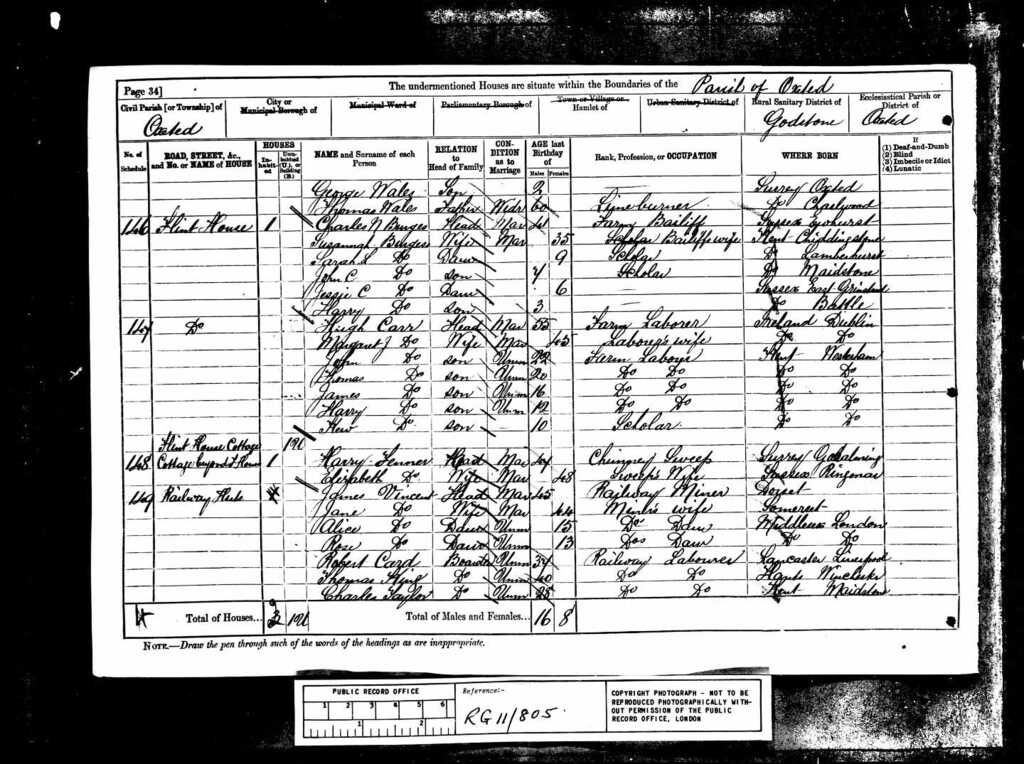 Page 34] The undermentioned Houses are situate within the Boundaries of the Parish of Oxted
Civil Parish [or Township] of City or Municipal Borough of Municipal Ward of Parliamentary Borough of Town or Village or Hamlet of Urban Sanitary District of Rural Sanitary District of Ecclesiastical Parish or District of
Oxted Godstone Oxted
No. of Schedule ROAD, STREET, &c., and No. or NAME of HOUSE HOUSES Inhabited Uninhabited (U.), or Building (B.) NAME and Surname of each Person RELATION to Head of Family CONDITION as to Marriage AGE last Birthday of Males Females Rank, Profession, or OCCUPATION WHERE BORN If (1) Deaf-and-Dumb (2) Blind (3) Imbecile or Idiot (4) Lunatic
George Wales Son 2 Surrey Oxted
Thomas Wales Father Widr 60 Lime burner Do Charlwood
146 Flint House 1 Charles N Burges Head Mar Farm Bailiff Sussex Ewhurst
Susannah Burges Wife Mar 35 Bailiffs wife Kent Chiddingstone
Sarah S Do Daur 9 Scholar Do Lamberhurst
John C Do Son 7 Scholar Do Maidstone
Jessie C Do Daur 6 Sussex East Grinstead
Harry Do Son 3 Do Battle
147 Do Hugh Carr Head Mar 55 Farm Laborer Ireland Dublin
Margaret J Do Wife Mar 43 wife Do Do
John Do son Unm 22 Farm Kent Westerham
Thomas Do son Unm 20 Do Do Do Do
James Do son Unm 16 Do Do Do Do
Harry Do son Unm 12 Do Do Do Do
Hew Do son 10 Scholar Do Do
Flint House Cottage 1
148 Cottage beyond F House 1 Harry Fenner Head Mar Chimney Sweep Surrey Godalming
Elizabeth Do Wife Mar 48 Sweeps Wife Sussex
149 Railway Huts James Vincent Head Mar 45 Railway Miner Dorset
Jane Do Wife Mar 44 Miners wife Somerset
Alice Do Daur Unm 15 Do Daur Middlesex London
Rose Do Daur Unm 13 Do Daur Do Do
Robert Card Boarder Unm 34 Railway Labourer Lancaster Liverpool
Thomas Do Unm 40 Do Do Hants Winchester
Charles Taylor Do Unm 28 Do Do Kent Maidstone
4 Total of Houses... Total of Males and Females... 16 8
NOTE.—Draw the pen through such of the words of the headings as are inappropriate.
PUBLIC RECORD OFFICE
1 2 3 4 5 6
1 2
Reference:-
RG 11/805
COPYRIGHT PHOTOGRAPH - NOT TO BE
REPRODUCED PHOTOGRAPHICALLY WITH-
OUT PERMISSION OF THE PUBLIC
RECORD OFFICE, LONDON